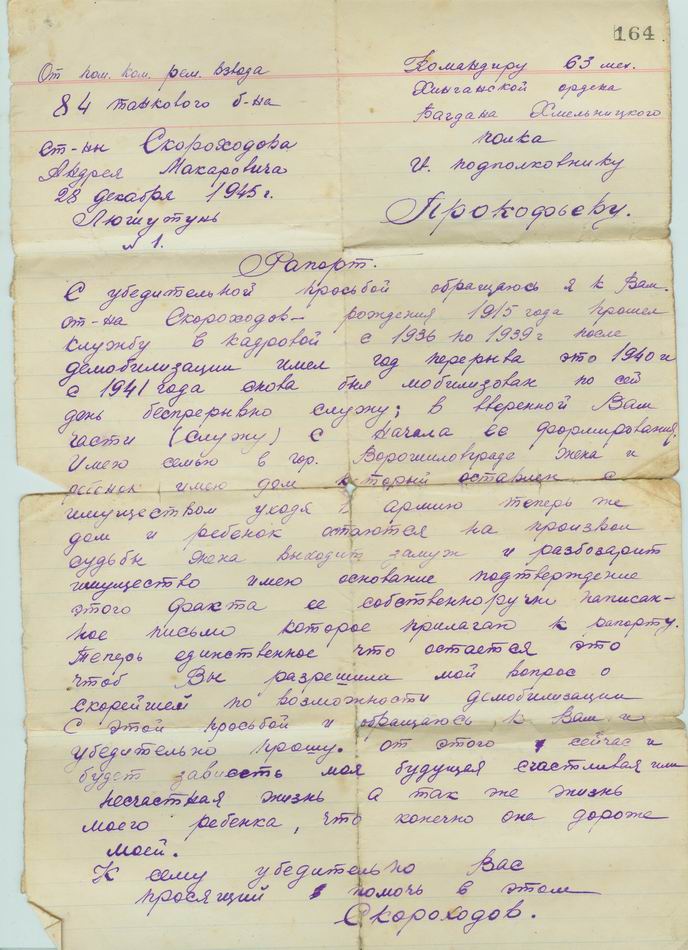 164
От пом. ком. рем. взвода
84 танкового б-на
ст-ны Скороходова
Андрея Макаровича
28 декабря 1945 г.
Люшутунь
№ 1.
Командиру 63 мех.
Хинганской ордена
Багдана Хмельницкого
полка
И. подполковнику
Прокофьеву.
Рапорт.
С убедительной просьбой обращаюсь я к Вам.
ст-на Скороходов– рождения 1915 года прошел
службу в кадровой с 1936 по 1939 г после
демобилизации имел год перерыва это 1940 и
с 1941 года снова был мобилизован по сей
день беспрерывно служу; в вверенной Вам
части (служу) с начала ее формирования.
Имею семью в гор. Ворошиловграде жена и
ребенок имею дом который оставлен с
имуществом уходя в армию теперь же
дом и ребенок остаются на произвол
судьбы жена выходит замуж и разбозарит
имущество имею основание подтверждение
этого факта ее собственноручно написан-
ное письмо которое прилагаю к рапорту.
Теперь единственное что остается это
чтоб Вы разрешила мой вопрос о
скорейшей по возможности демобилизации
С этой просьбой и обращаюсь к Вам и
убедительно прошу. от этого сейчас и
будет зависеть моя будущая счастливая или
несчастная жизнь а так же жизнь
моего ребенка, что конечно она дороже
моей.
К сему убедительно Вас
просящий помочь в этом
Скороходов.